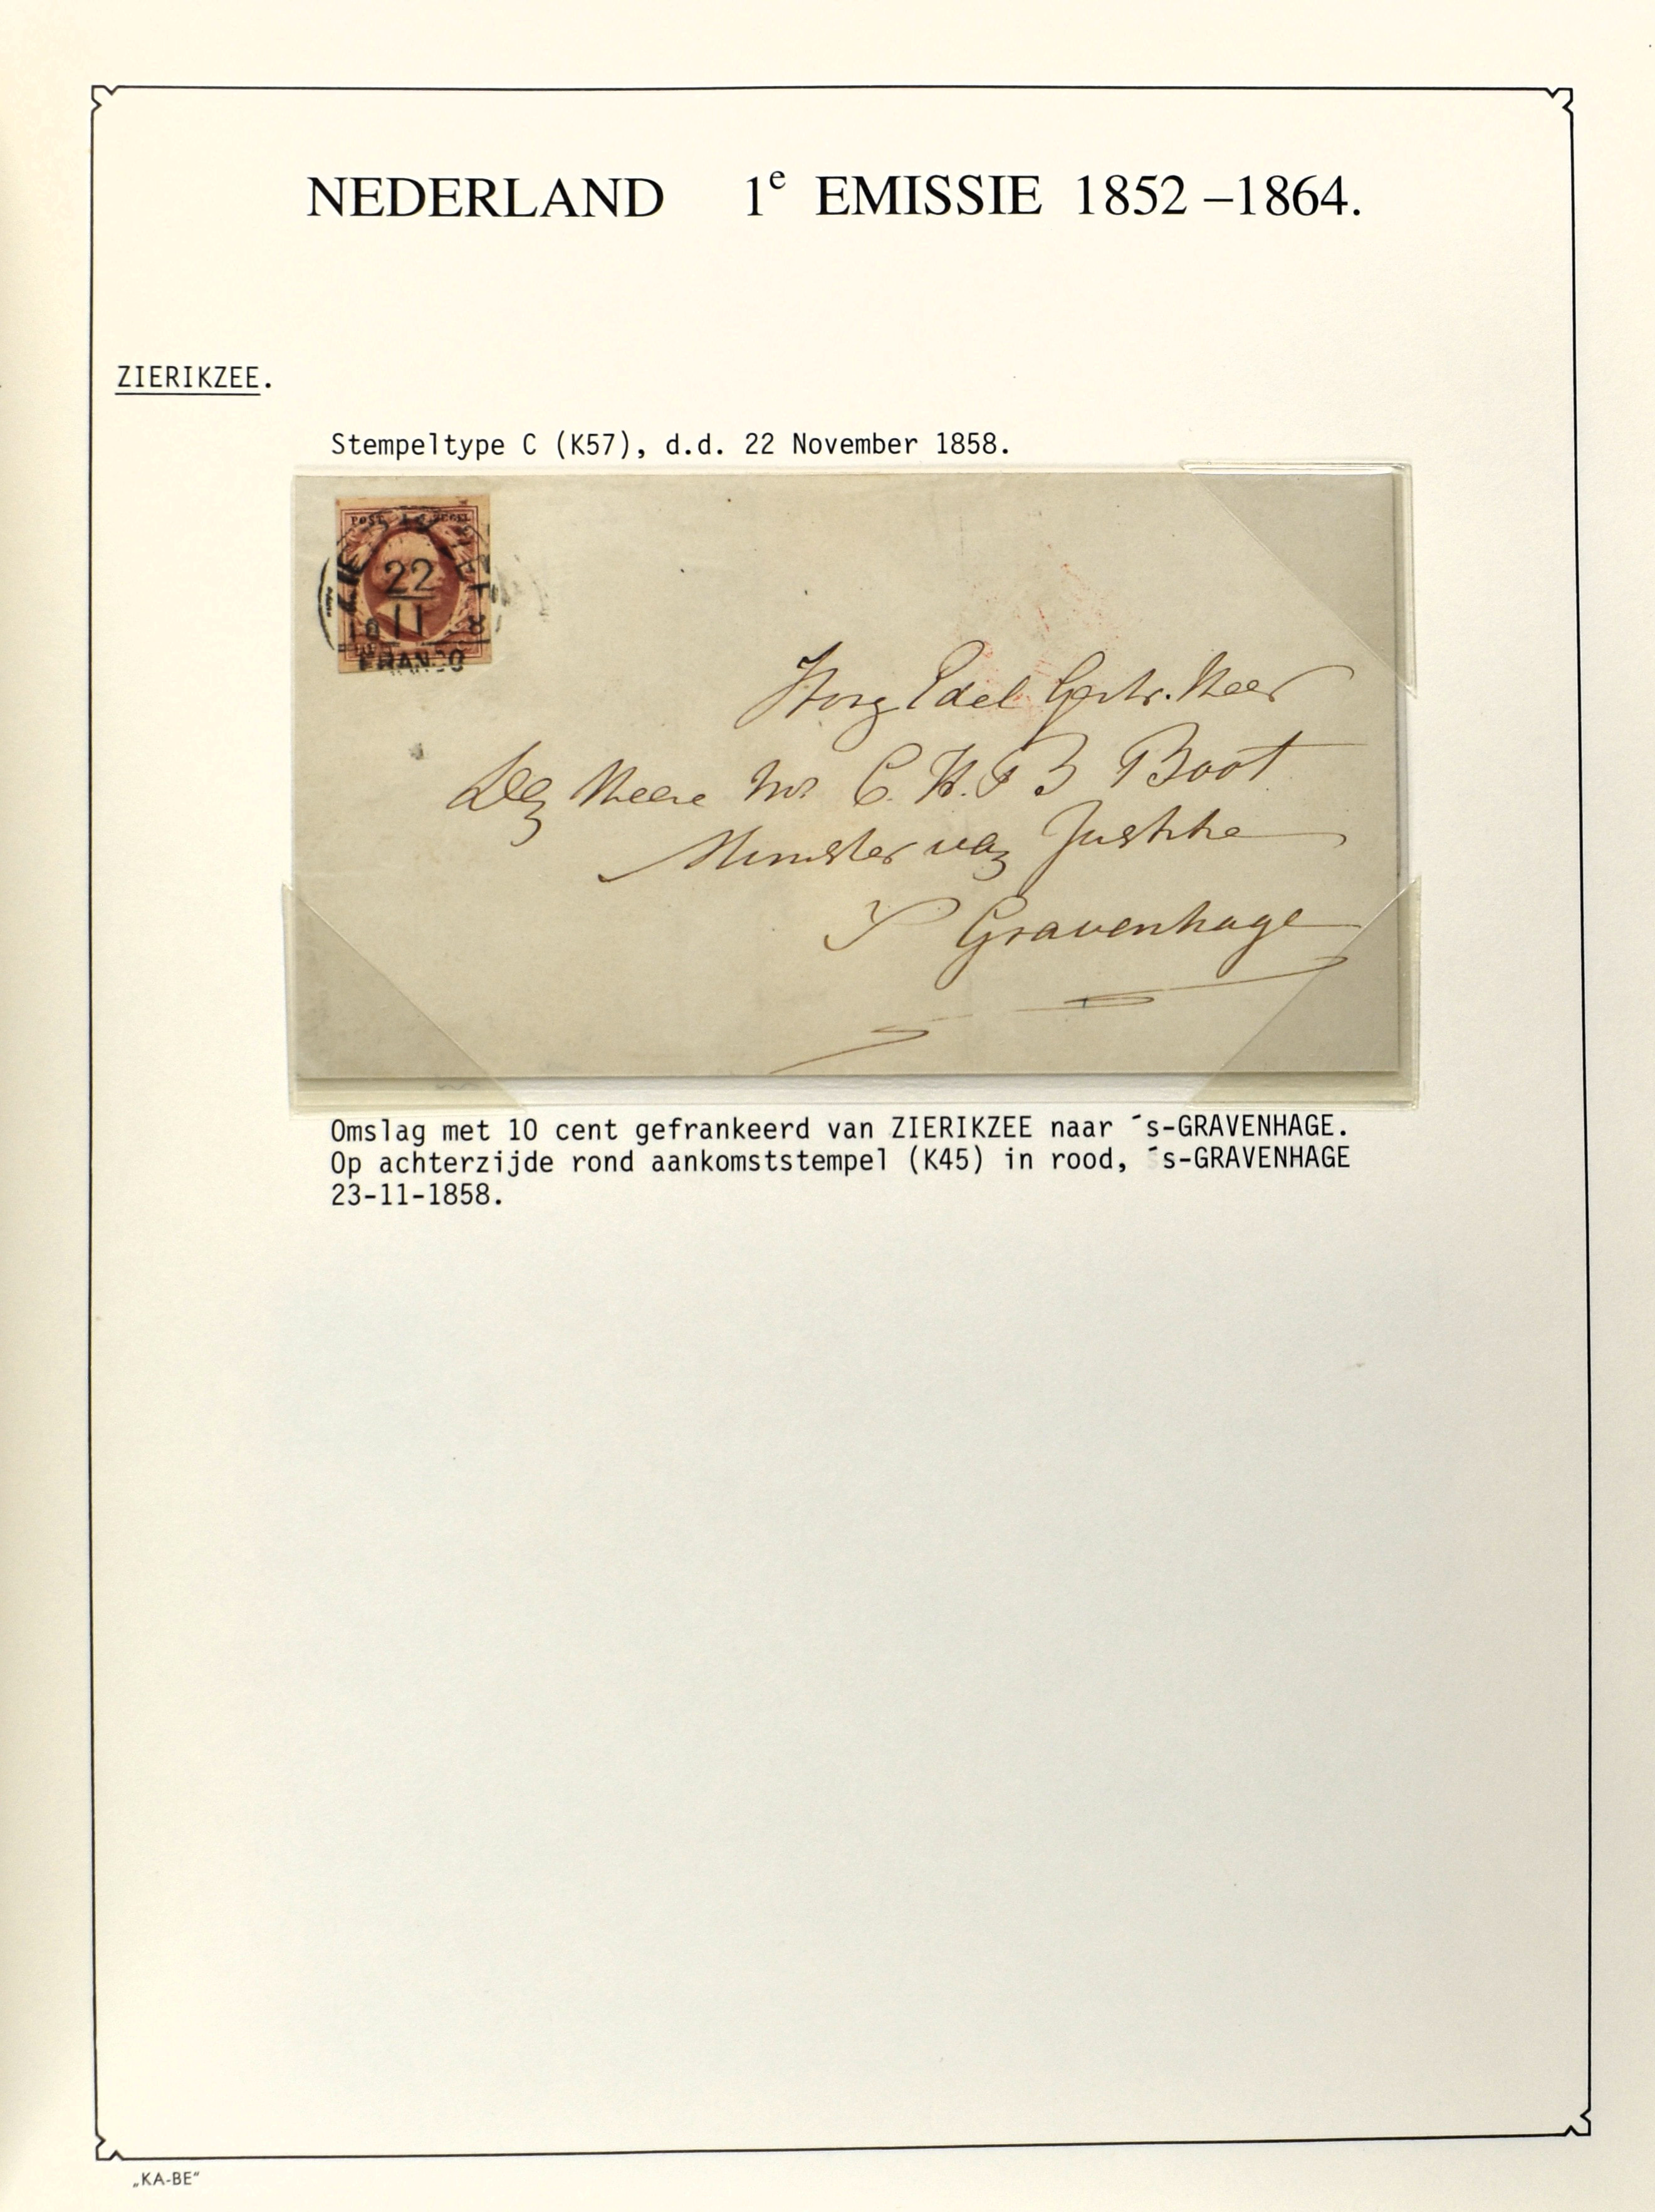 NEDERLAND 1e EMISSIE 1852 –1864.
ZIERIKZEE.
Stempeltype C (K57), d.d. 22 November 1858.
POST ZEGEL
22
11
FRANCO
Hoog Edel Gestr. Heer
Den Heere Mr C. H. B Boot
Minister van Justitie
S Gravenhage
Omslag met 10 cent gefrankeerd van ZIERIKZEE naar ´s-GRAVENHAGE.
Op achterzijde rond aankomststempel (K45) in rood, ´s-GRAVENHAGE
23-11-1858.
„KA-BE“